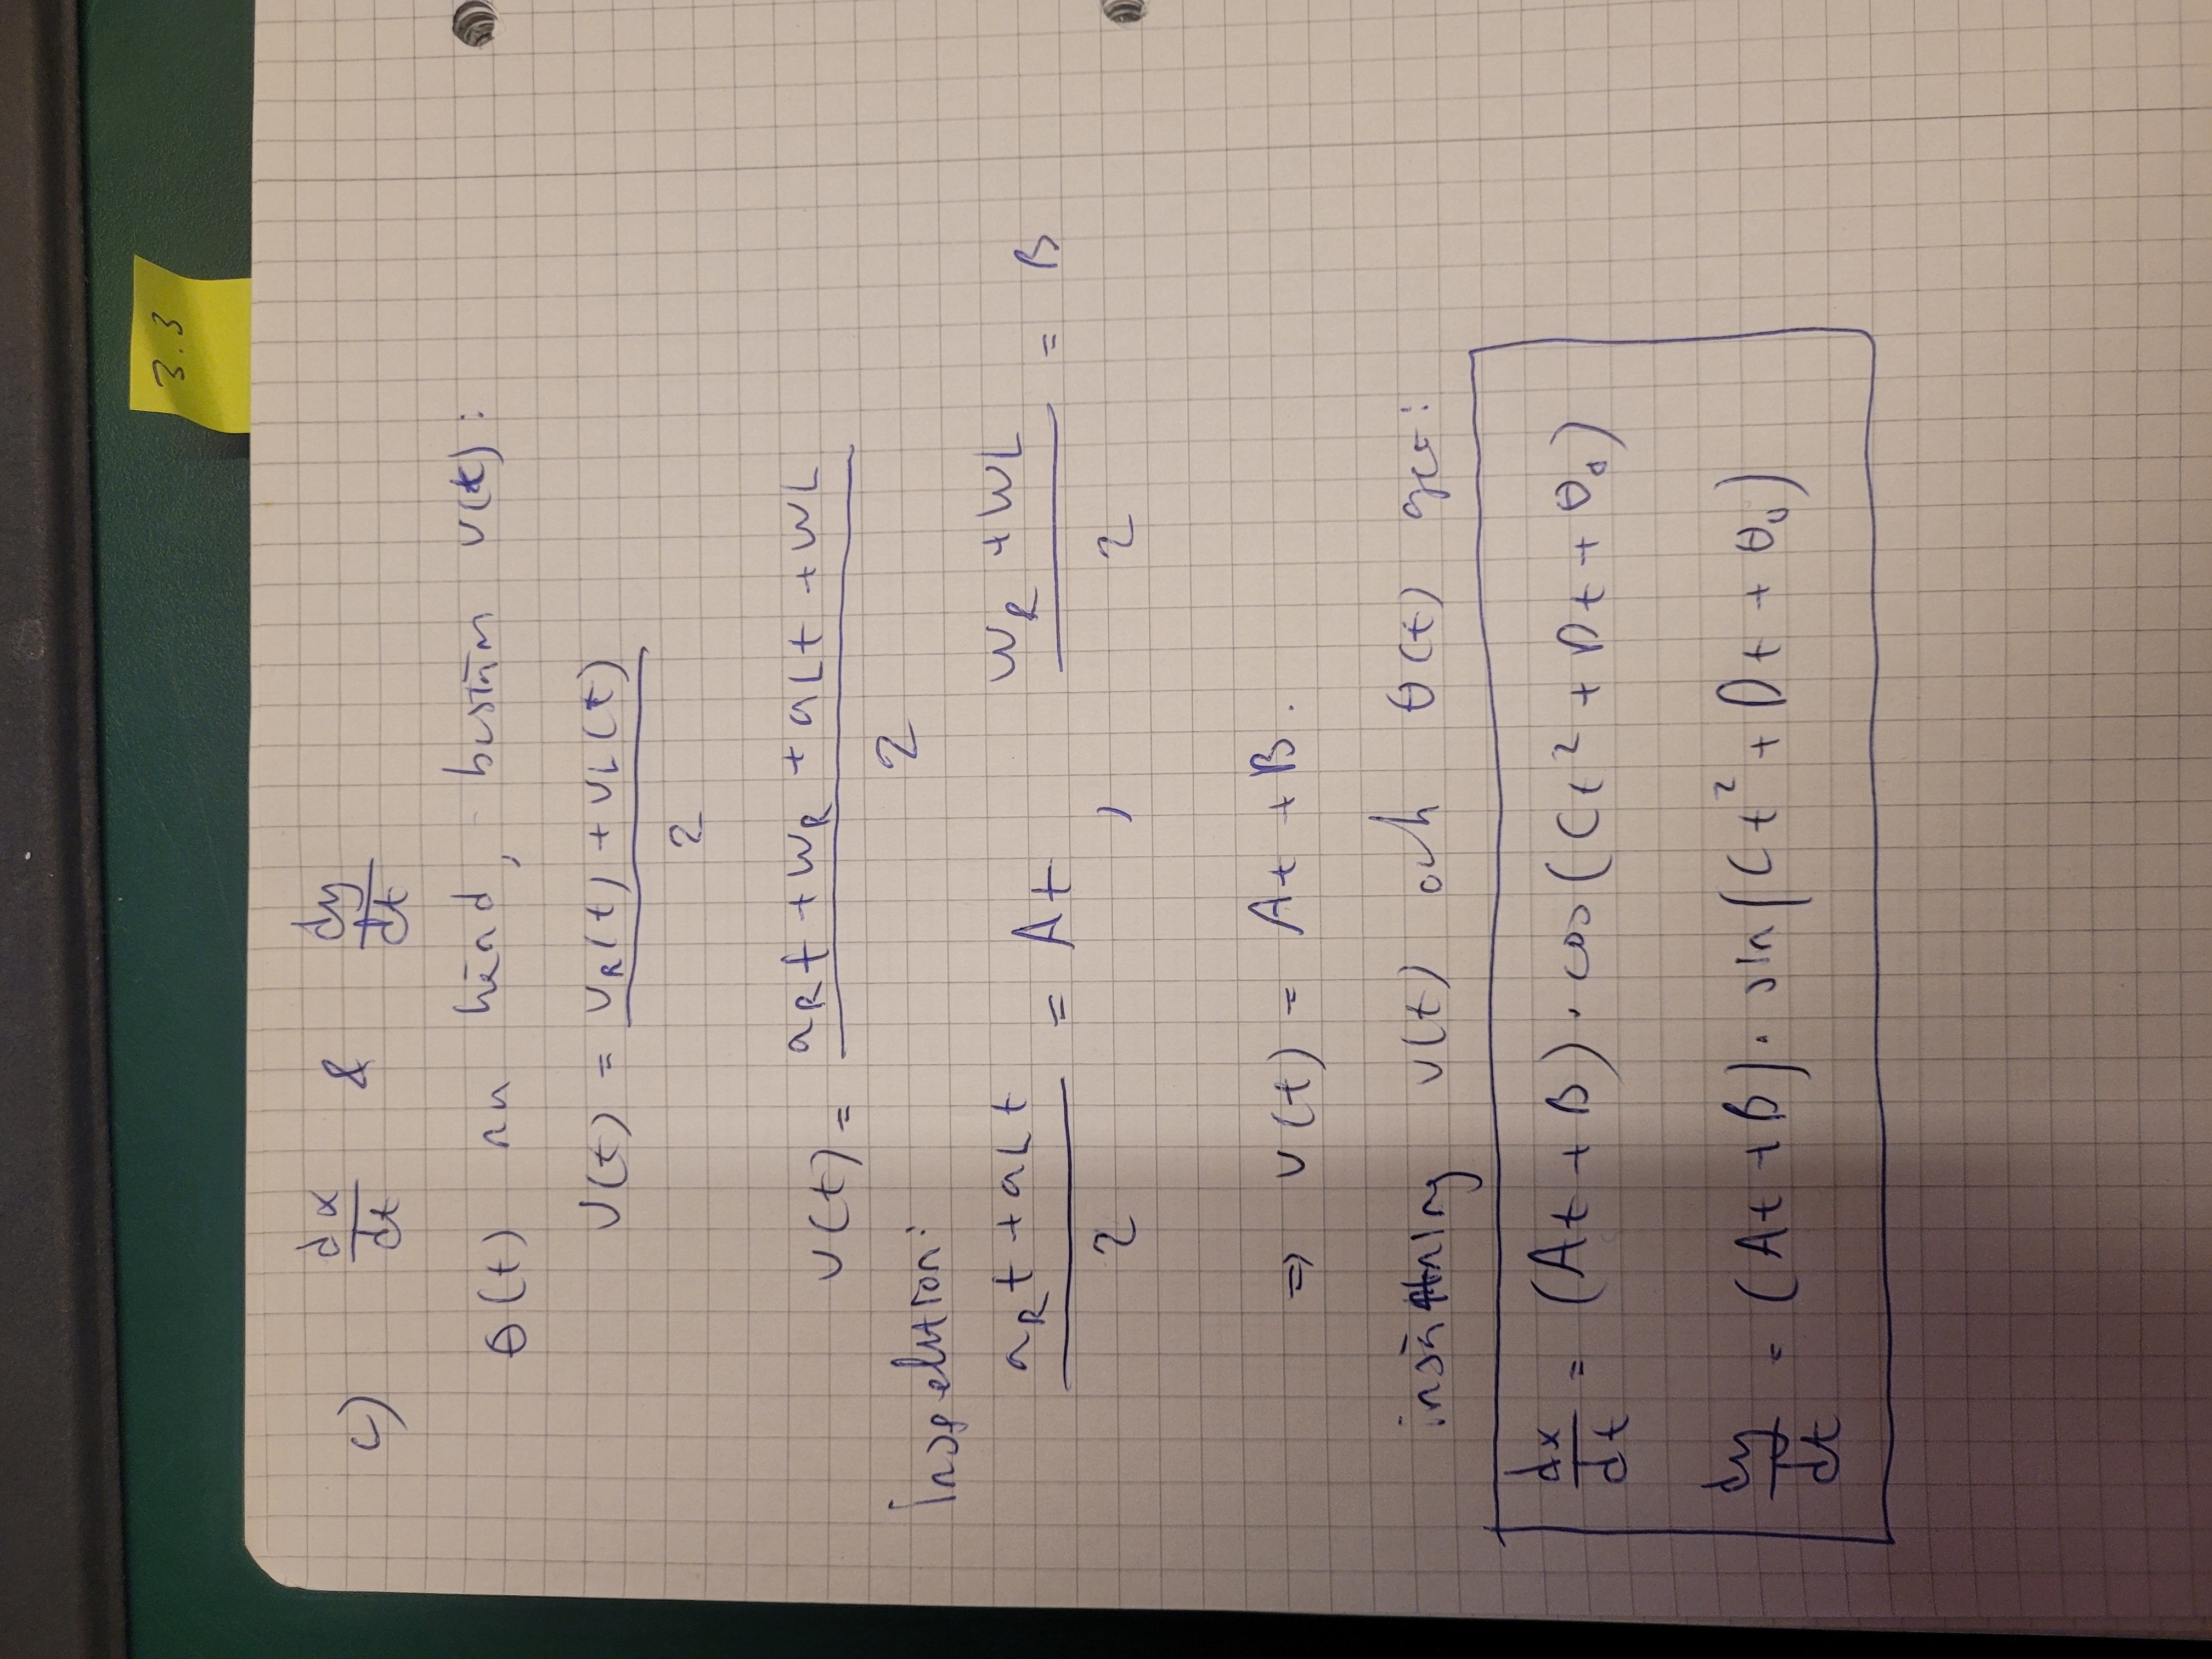 3.3
c) dx/dt & dy/dt
θ(t) nu känd, bestäm v(t):
v(t) = (v_R(t) + v_L(t))/2
v(t) = (a_R t + w_R + a_L t + w_L)/2
Inspektion:
(a_R t + a_L t)/2 = At, (w_R + w_L)/2 = B
⇒ v(t) = At + B.
insättning v(t) och θ(t) ger:
dx/dt = (At + B) · cos(Ct² + Dt + θ₀)
dy/dt = (At + B) · sin(Ct² + Dt + θ₀)